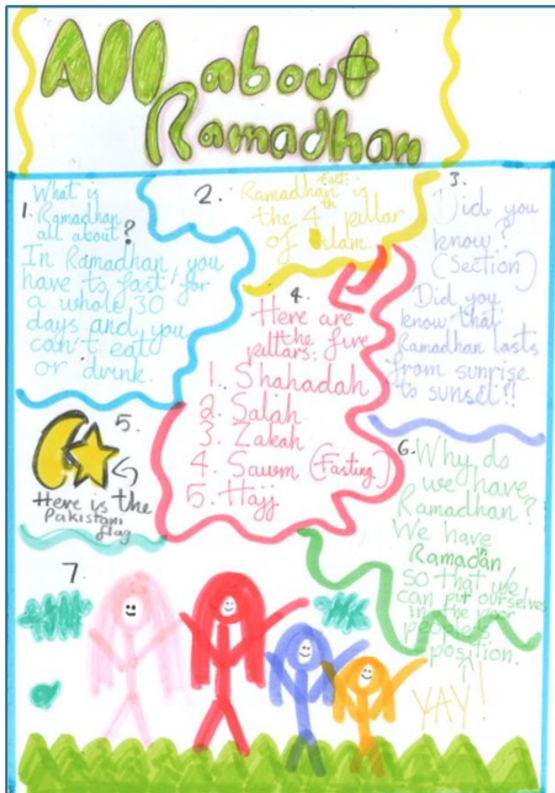 All about
Ramadhan
1. What is
Ramadhan
all about?
In Ramadhan you
have to fast, for
a whole 30
days and you
can't eat
or drink.
2. Fact:
Ramadhan is
the 4th pillar
of Islam.
3.
Did you
know?
(Section)
Did you
know that
Ramadhan lasts
from sunrise
to sunset!!
4.
Here are
the five
pillars:
1. Shahadah
2. Salah
3. Zakah
4. Sawm (Fasting)
5. Hajj
5.
Here is the
Pakistani
flag
6. Why do
we have
Ramadhan?
We have
Ramadan
so that we
can put ourselves
in the poor
peoples
position.
in
YAY!
7.